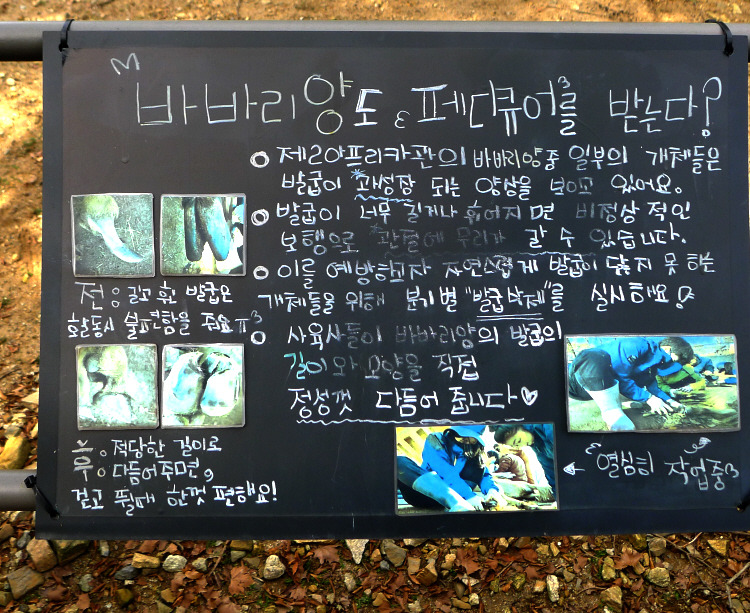 바바리양도 페디큐어를 받는다?
제2아프리카관의 바바리양중 일부의 개체들은
발굽이 과성장 되는 양상을 보이고 있어요.
발굽이 너무 길거나 휘어지면 비정상적인
보행으로 관절에 무리가 갈 수 있습니다.
이를 예방하고자 자연스럽게 발굽이 닳지 못하는
개체들을 위해 분기별 "발굽삭제"를 실시해요
사육사들이 바바리양의 발굽의
길이와 모양을 직접
정성껏 다듬어 줍니다♡
전: 길고 휜 발굽은
활동시 불편함을 주죠ㅠ
후: 적당한 길이로
다듬어주면,
걷고 뛸때 한껏 편해요!
열심히 작업중